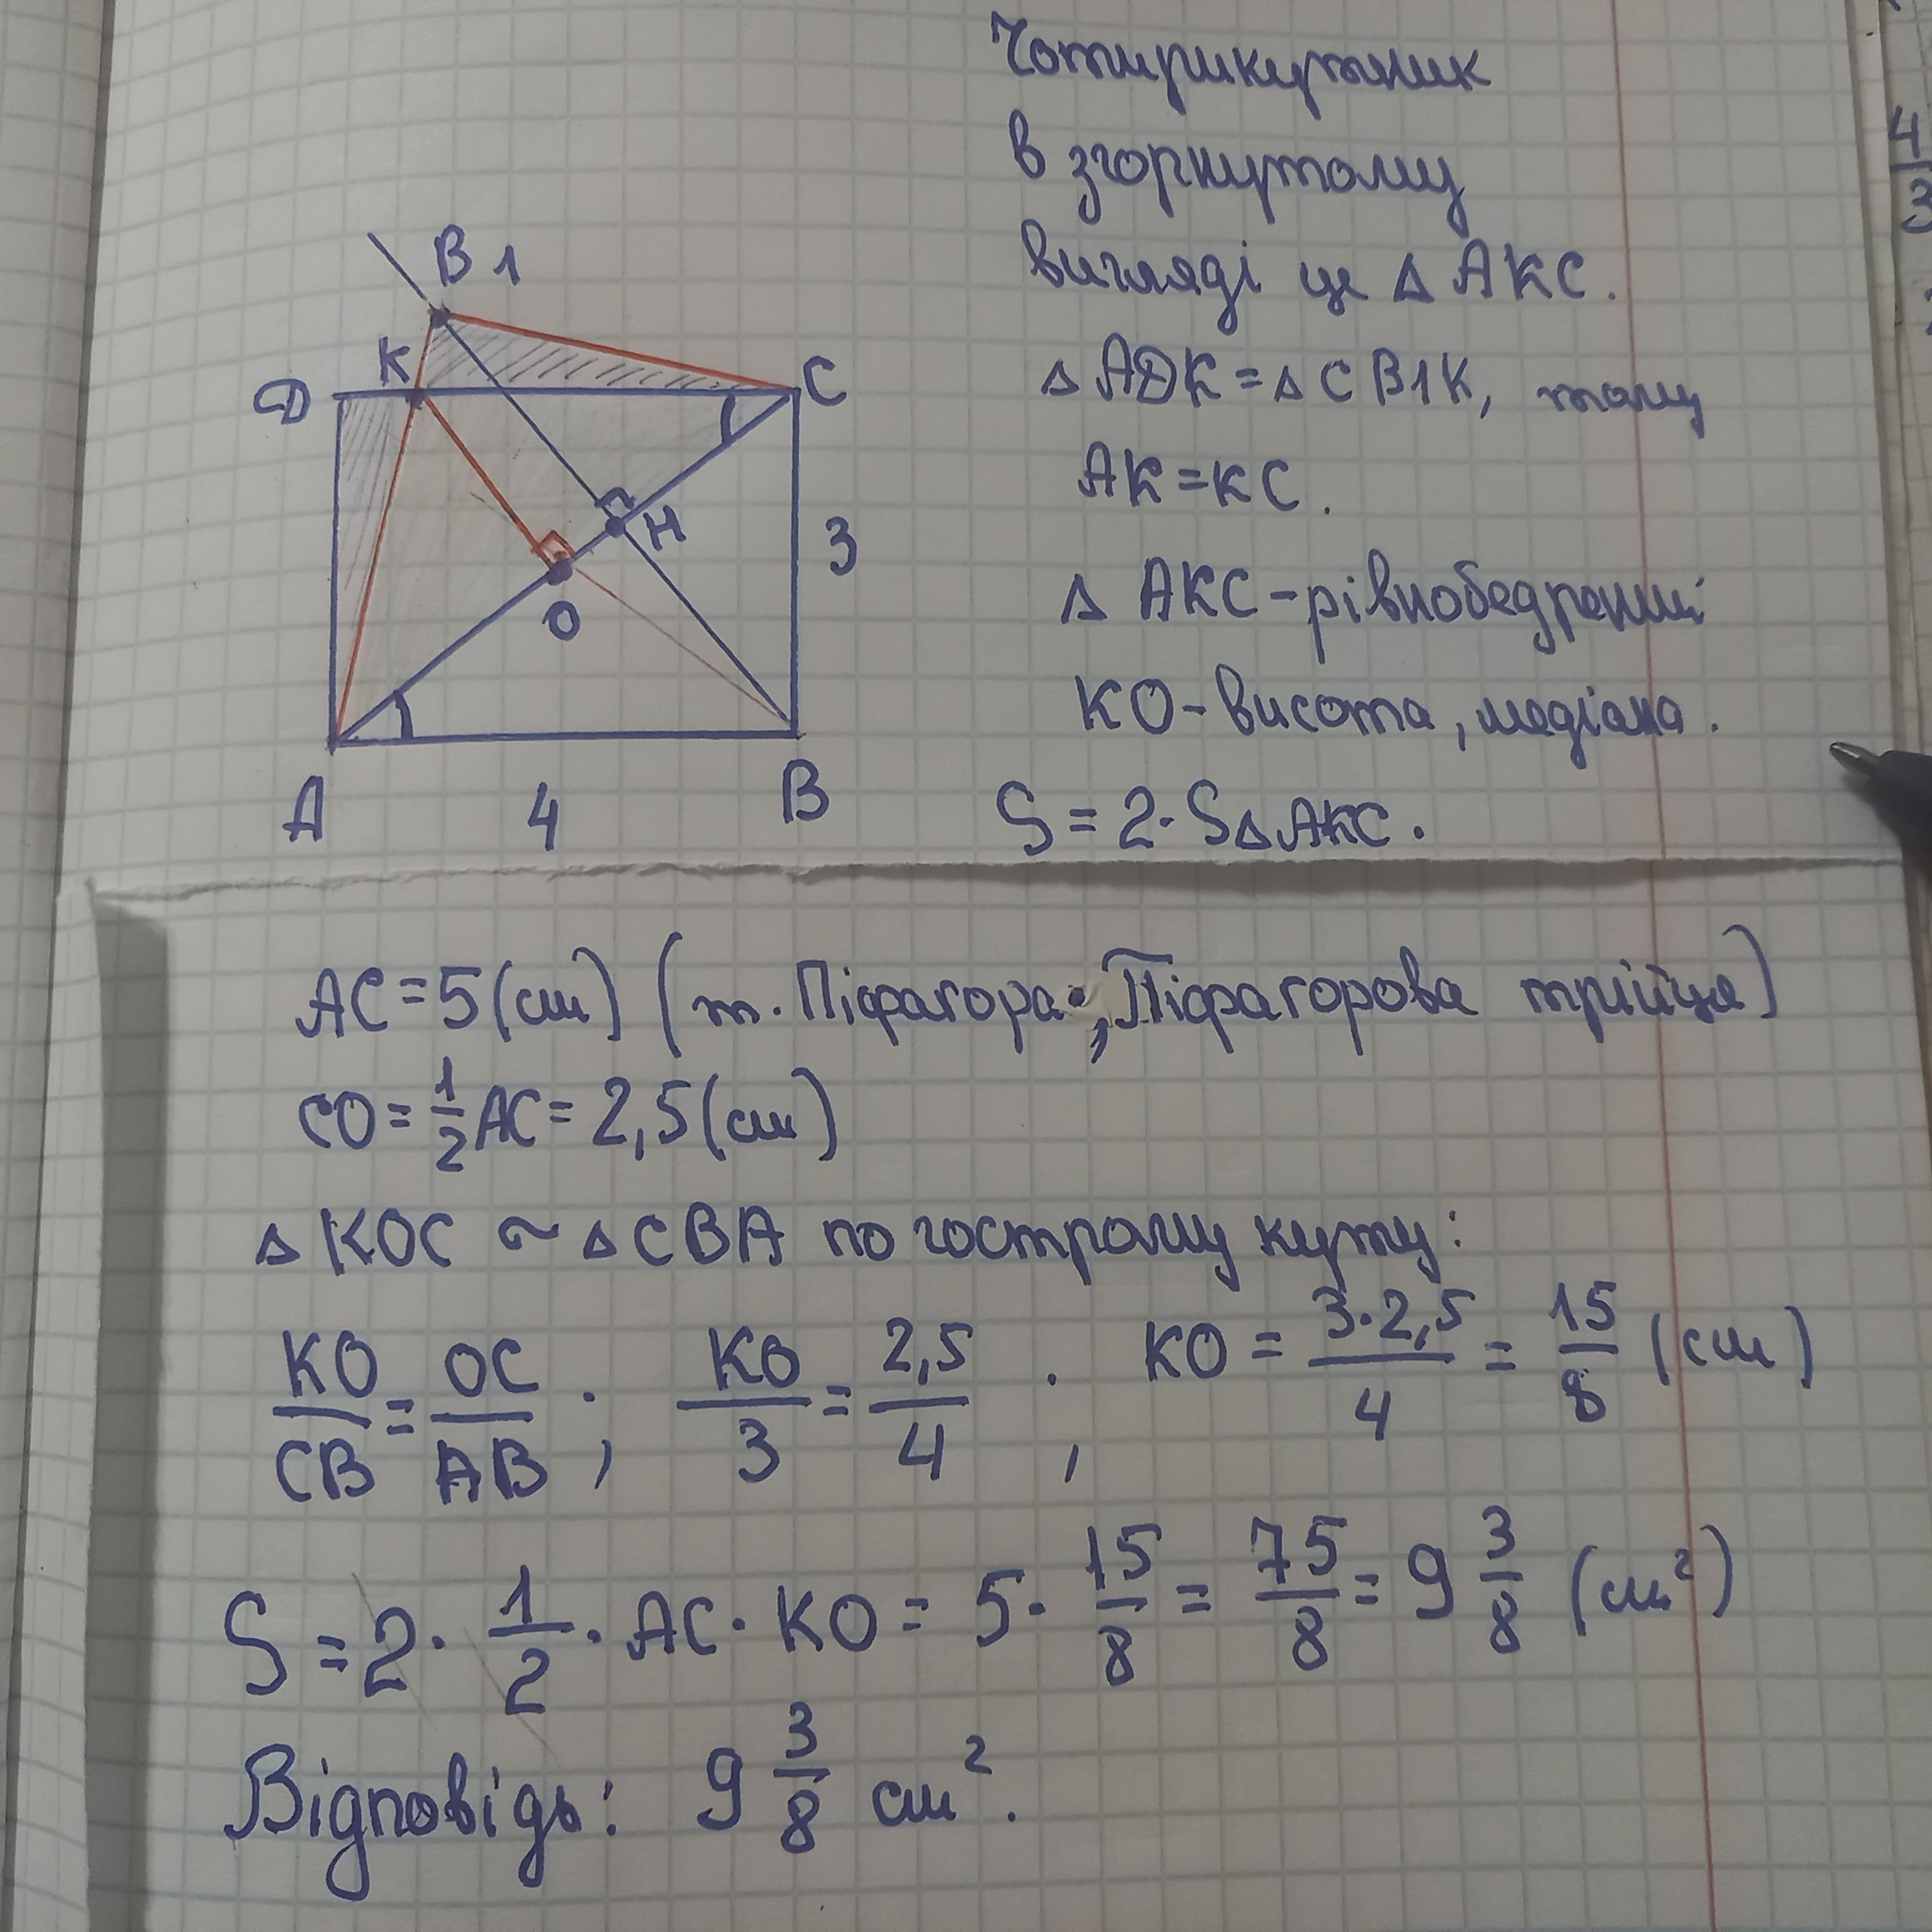 Чотирикутник
в згорнутому
вигляді це Δ AKC.
Δ ADK = Δ CB1K, тому
AK = KC.
Δ AKC - рівнобедрений
KO - висота, медіана.
S = 2 · SΔAKC.
B1
K
D
C
H
3
O
A
4
B
4
3
AC = 5 (см) (т. Піфагора, Піфагорова трійця)
CO = 1/2 AC = 2,5 (см)
Δ KOC ~ Δ CBA по гострому куту:
KO/CB = OC/AB ; KO/3 = 2,5/4 ; KO = 3·2,5/4 = 15/8 (см)
S = 2 · 1/2 · AC · KO = 5 · 15/8 = 75/8 = 9 3/8 (см²)
Відповідь: 9 3/8 см².